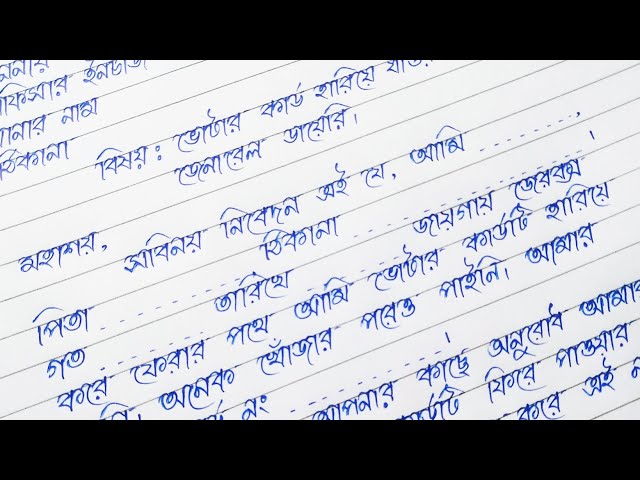 অফিসার ইনচার্জ
থানার নাম
ঠিকানা
বিষয়: ভোটার কার্ড হারিয়ে
জেনারেল ডায়েরি।
মহাশয়,
সবিনয় নিবেদন এই যে, আমি ..........,
পিতা .......... ঠিকানা ..........।
গত .......... তারিখে .... জায়গায়
করে ফেরার পথে আমি ভোটার কার্ডটি হারিয়ে
অনেক খোঁজার পরেও পাইনি। আমার
নং ..........।
আপনার কাছে অনুরোধ আমার
ফিরে পাওয়ার
করে এই